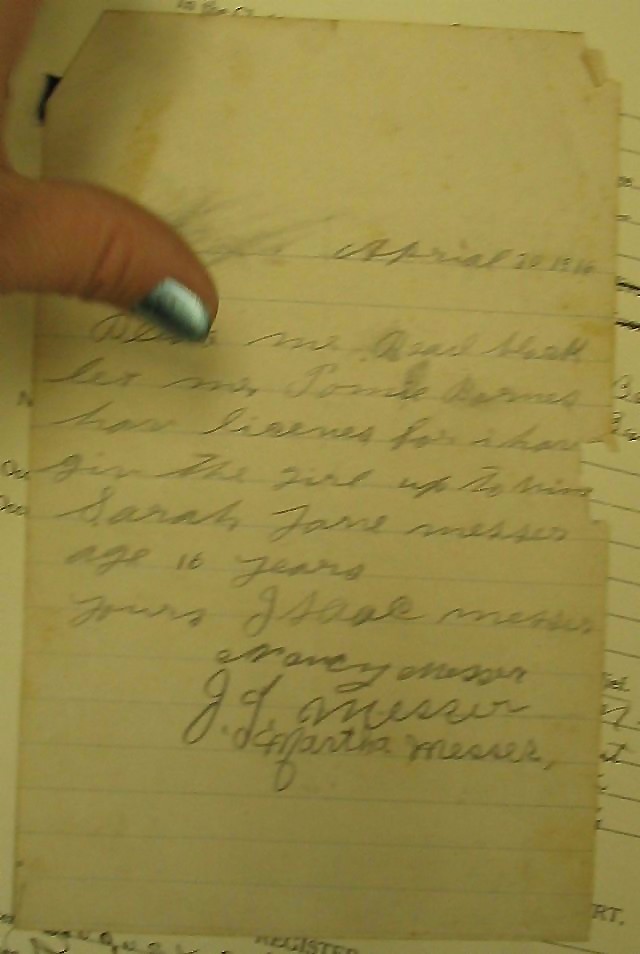 Aprial 20 1916
me Dead
let me, Tomie Barnes
hav lisenes for i hav
giv the girl up to him
Sarah Jane messer
age 16 years
yours Isaac messer
Nancy Messer
J. J. Messer
Martha Messer,
REGISTER
RT.